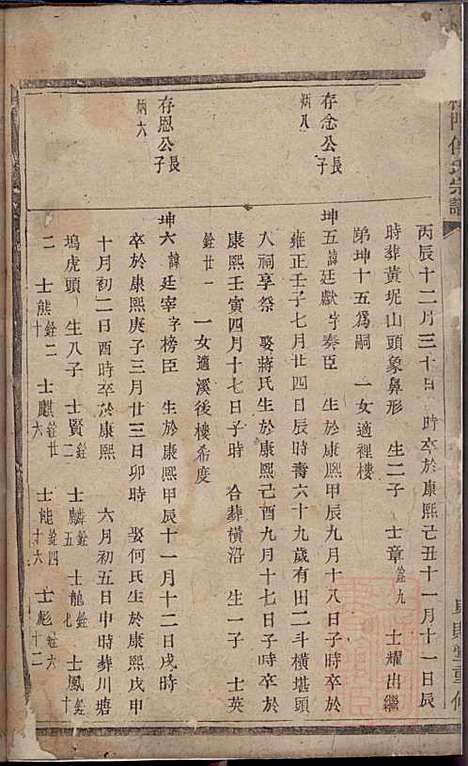 宗譜
丙辰十二月三十日 時卒於康熙己丑十一月十一日辰
時葬黃坭山頭象鼻形 生二子 士章銓九 士耀出繼
弟坤十五為嗣 一女適裡樓
存念公長子
炳八
坤五諱廷獻字奏臣 生於康熙甲辰九月十八日子時卒於
雍正壬子七月廿四日辰時壽六十九歲有田二斗橫堪頭
入祠享祭 娶蔣氏生於康熙己酉九月十七日子時卒於
康熙壬寅四月十七日子時 合葬橫沿 生一子 士英
銓廿一 一女適溪後樓希度
存恩公長子
炳六
坤六諱廷宰字榜臣 生於康熙甲辰十一月十二日戌時
卒於康熙庚子三月廿三日卯時 娶何氏生於康熙戊申
十月初二日酉時卒於康熙 六月初五日申時葬川塘
塢虎頭 生八子 士賢銓二 士麟銓五 士龍銓七 士鳳銓十
二 士熊銓二十 士麒銓六 士能銓四十六 士彪銓六十二